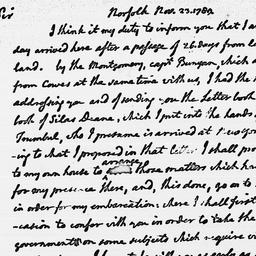 Sir
Norfolk Nov. 23. 1789
I think it my duty to inform you that I a
day arrived here after a passage of 26. days from
land. by the Montgomery, capt. Bunyan, which
from Cowes at the same time with us, I had the
addressing you and of sending you the Letter book
book of Silas Deane, which I put into the hands
Trumbul, who I presume is arrived at
-ing to what I proposed in that letter I shall pro
to my own house to arrange those matters which
for my presence there, and, this done, go on to
in order for my embarcation; where I shall first
-casion to confer with you in order to take the
government on some subjects which require